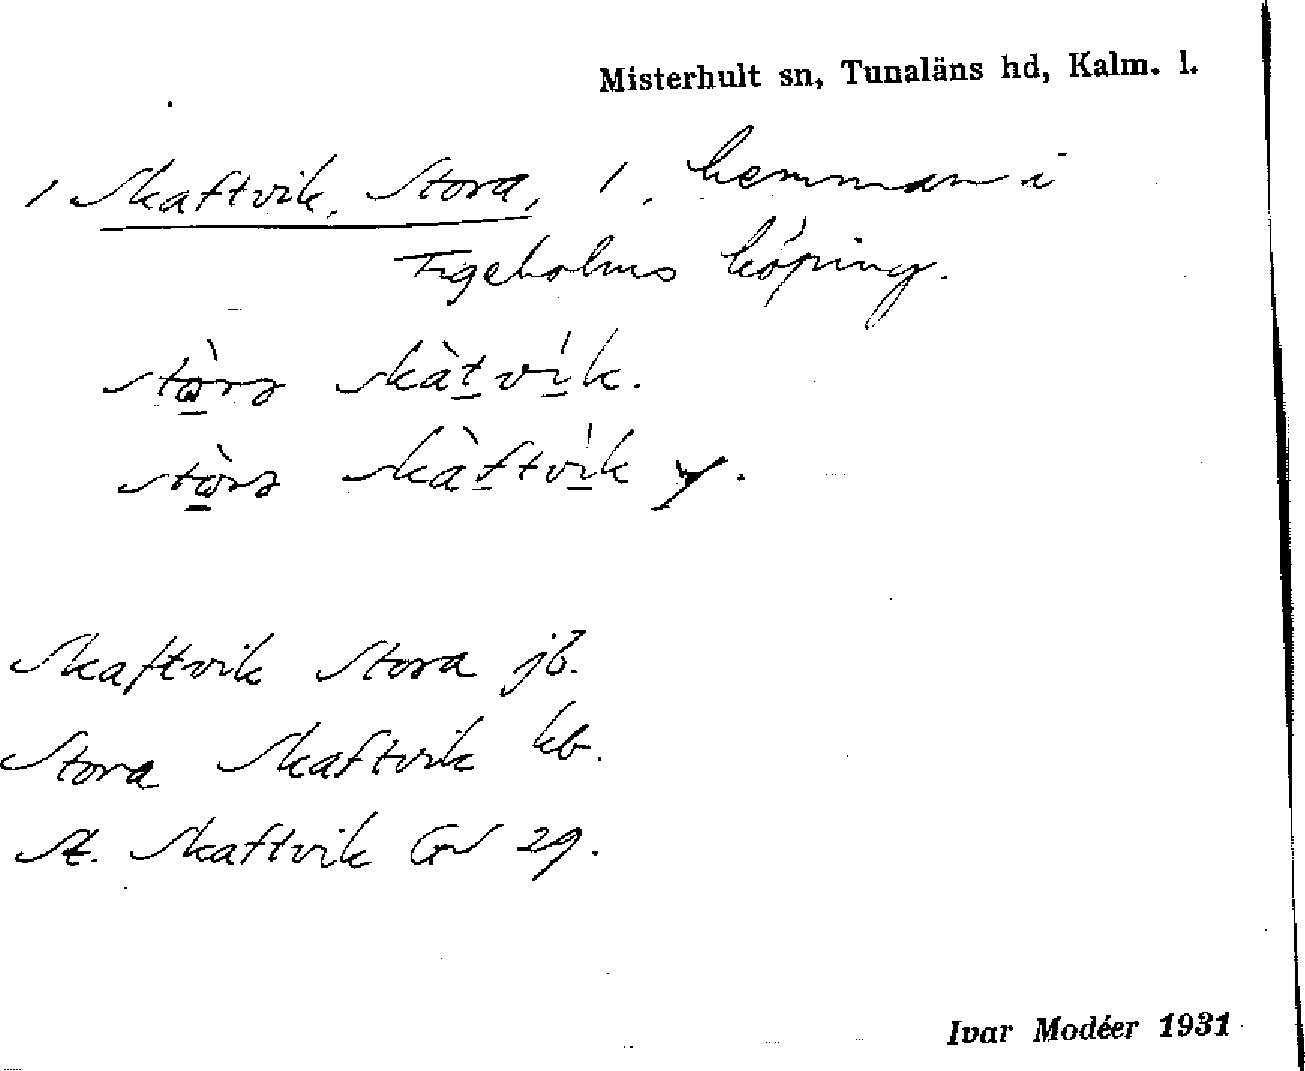 Misterhult sn, Tunaläns hd, Kalm. l.
/ Skaftvik, Stora, /, hemman i
Figeholms köping.
stòrə skàtvík.
stòrə skàftvík y.
Skaftvik Stora jb.
Stora Skaftvik kb.
St. Skaftvik GV 29.
Ivar Modéer 1931